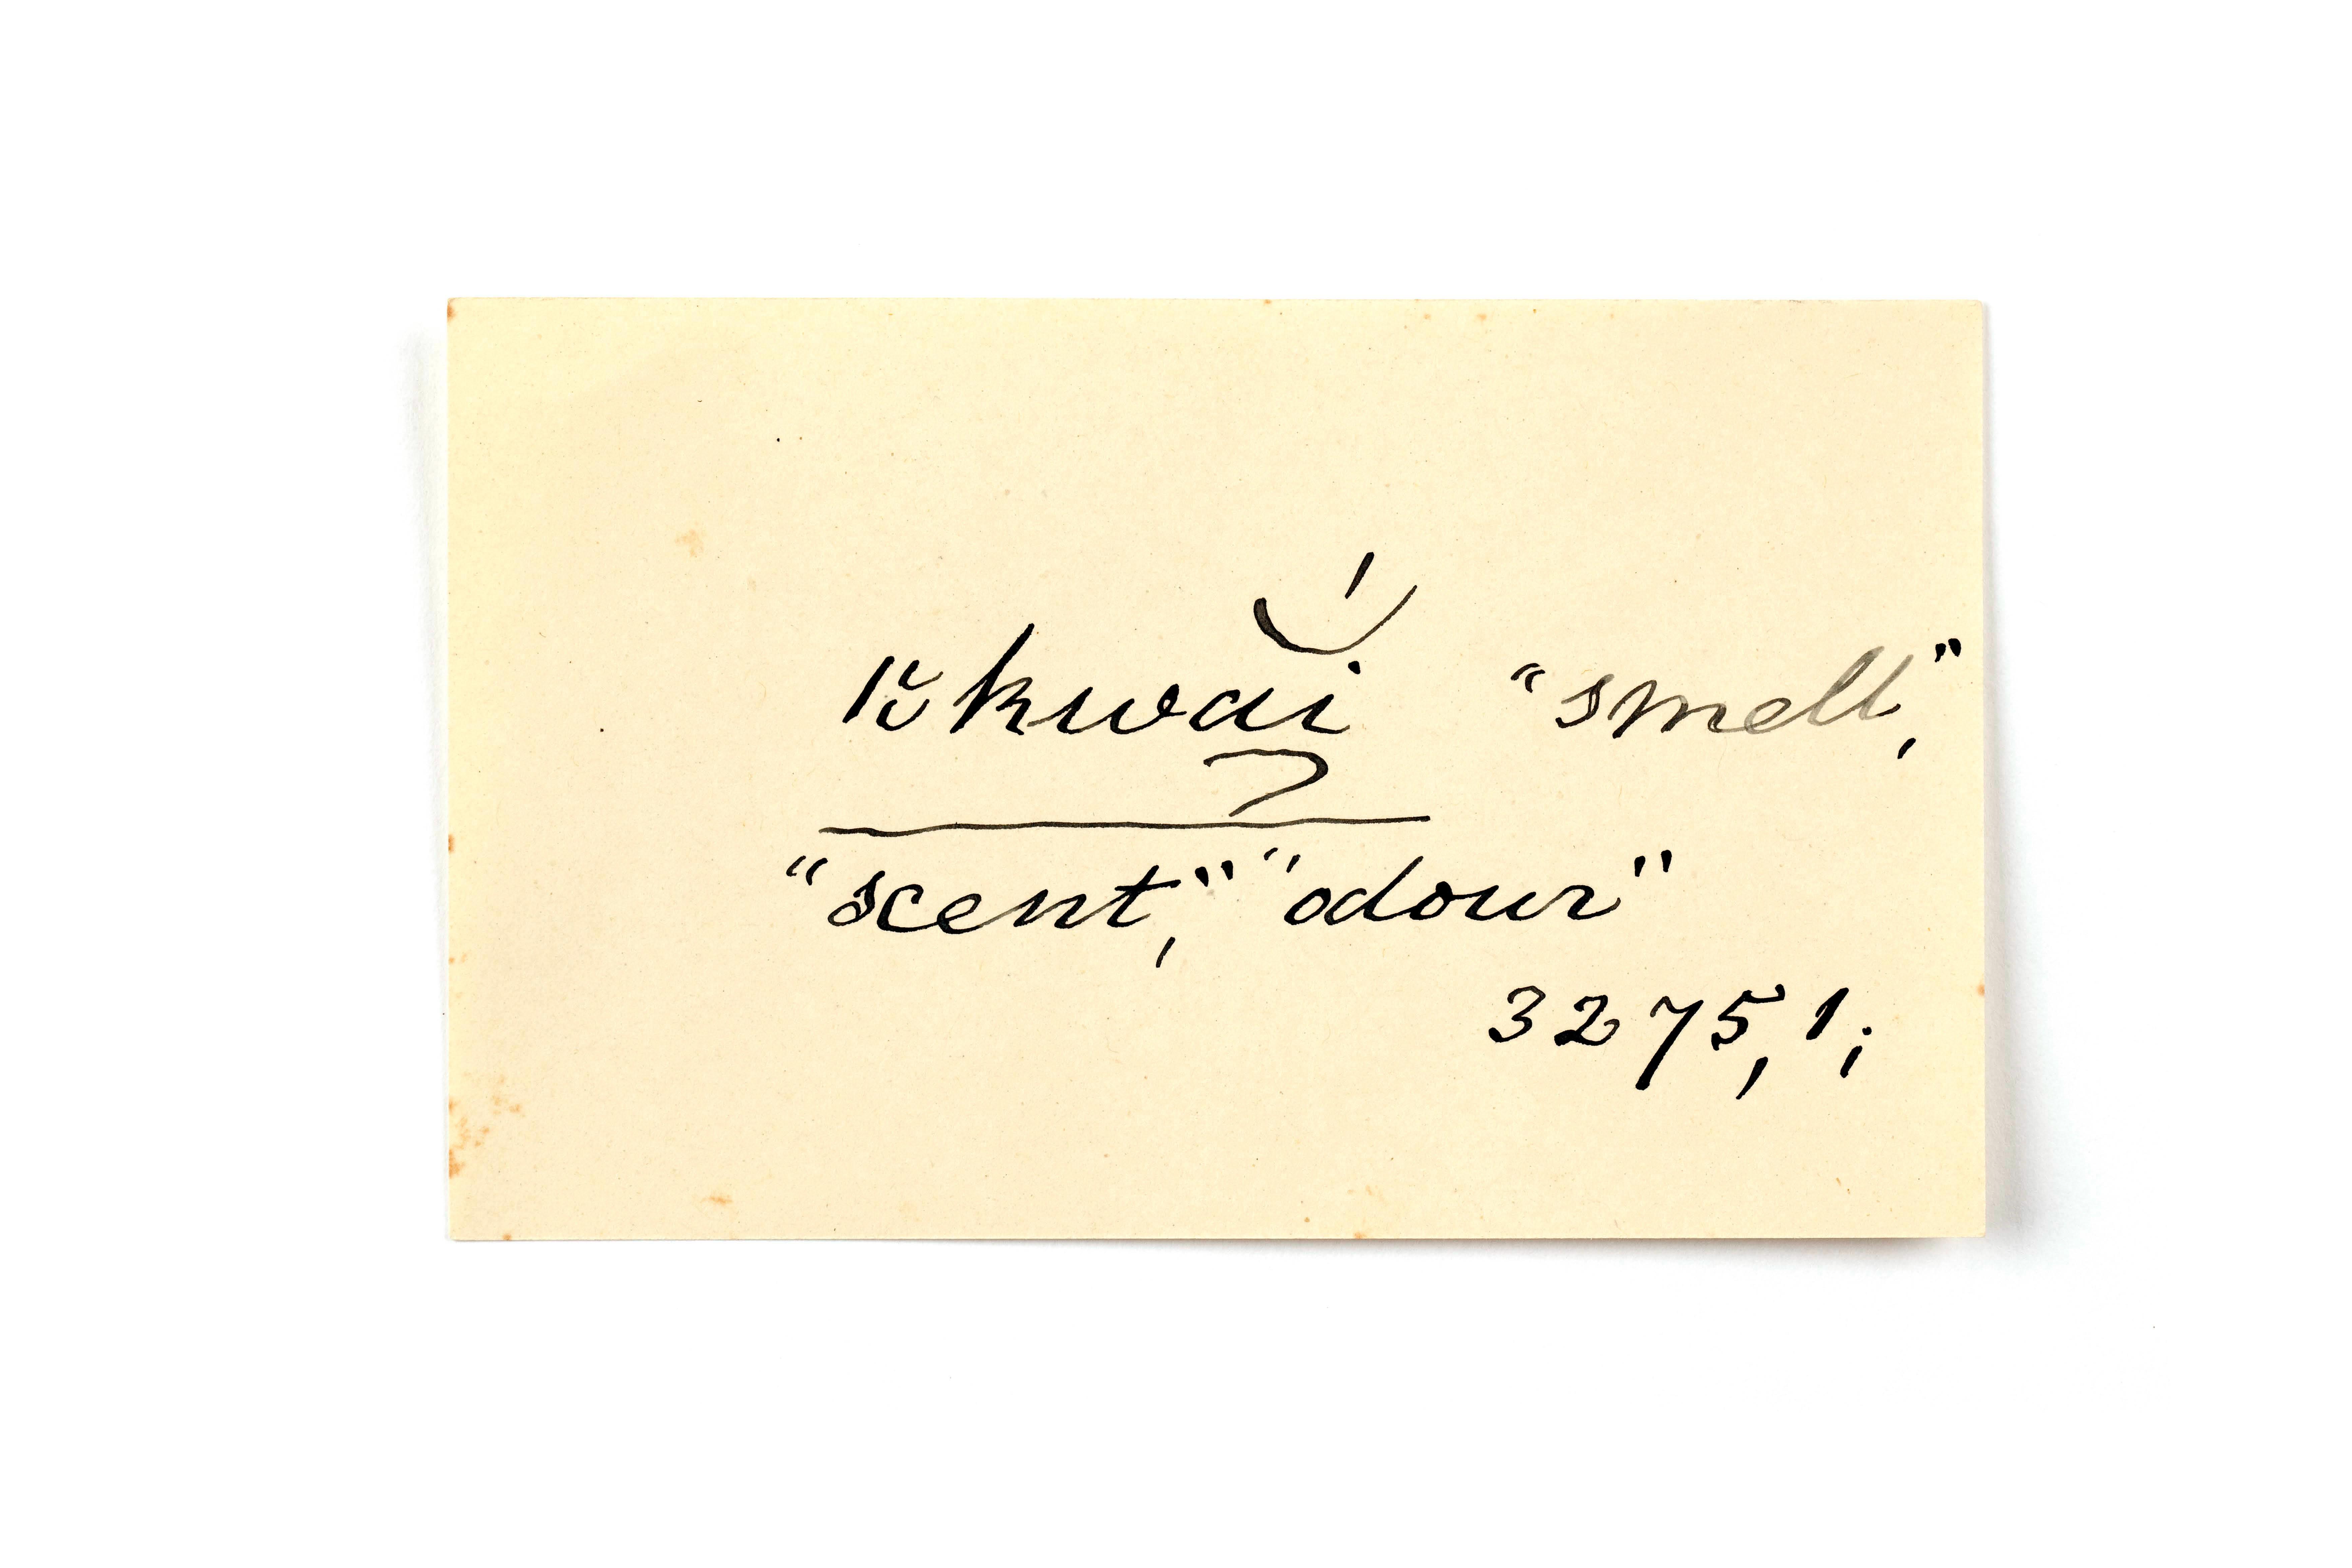 |ʿkwaĭ́ "smell,"
"scent," "odour"
3275, 1;